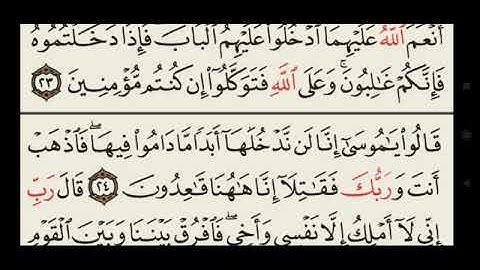 أَنْعَمَ ٱللَّهُ عَلَيْهِمَا ٱدْخُلُوا۟ عَلَيْهِمُ ٱلْبَابَ فَإِذَا دَخَلْتُمُوهُ
فَإِنَّكُمْ غَٰلِبُونَ ۚ وَعَلَى ٱللَّهِ فَتَوَكَّلُوٓا۟ إِن كُنتُم مُّؤْمِنِينَ ٢٣
قَالُوا۟ يَٰمُوسَىٰٓ إِنَّا لَن نَّدْخُلَهَآ أَبَدًا مَّا دَامُوا۟ فِيهَا ۖ فَٱذْهَبْ
أَنتَ وَرَبُّكَ فَقَٰتِلَآ إِنَّا هَٰهُنَا قَٰعِدُونَ ٢٤ قَالَ رَبِّ
إِنِّى لَآ أَمْلِكُ إِلَّا نَفْسِى وَأَخِى ۖ فَٱفْرُقْ بَيْنَنَا وَبَيْنَ ٱلْقَوْمِ